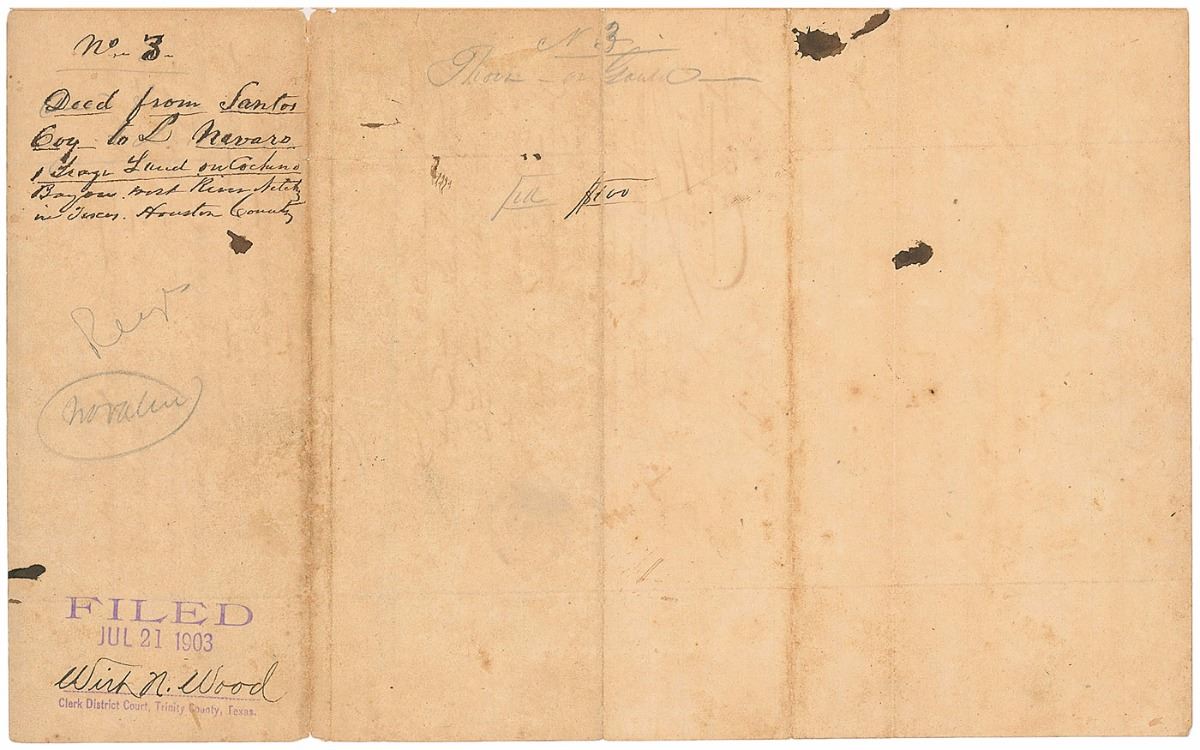 No. 3
Deed from Santos
Coy to L Navaro
1 League Land on Cochino
Bayou west River
in Texas. Houston County
Rec'd
FILED
JUL 21 1903
Wirt N. Wood
Clerk District Court, Trinity County, Texas.
N. 3
$100